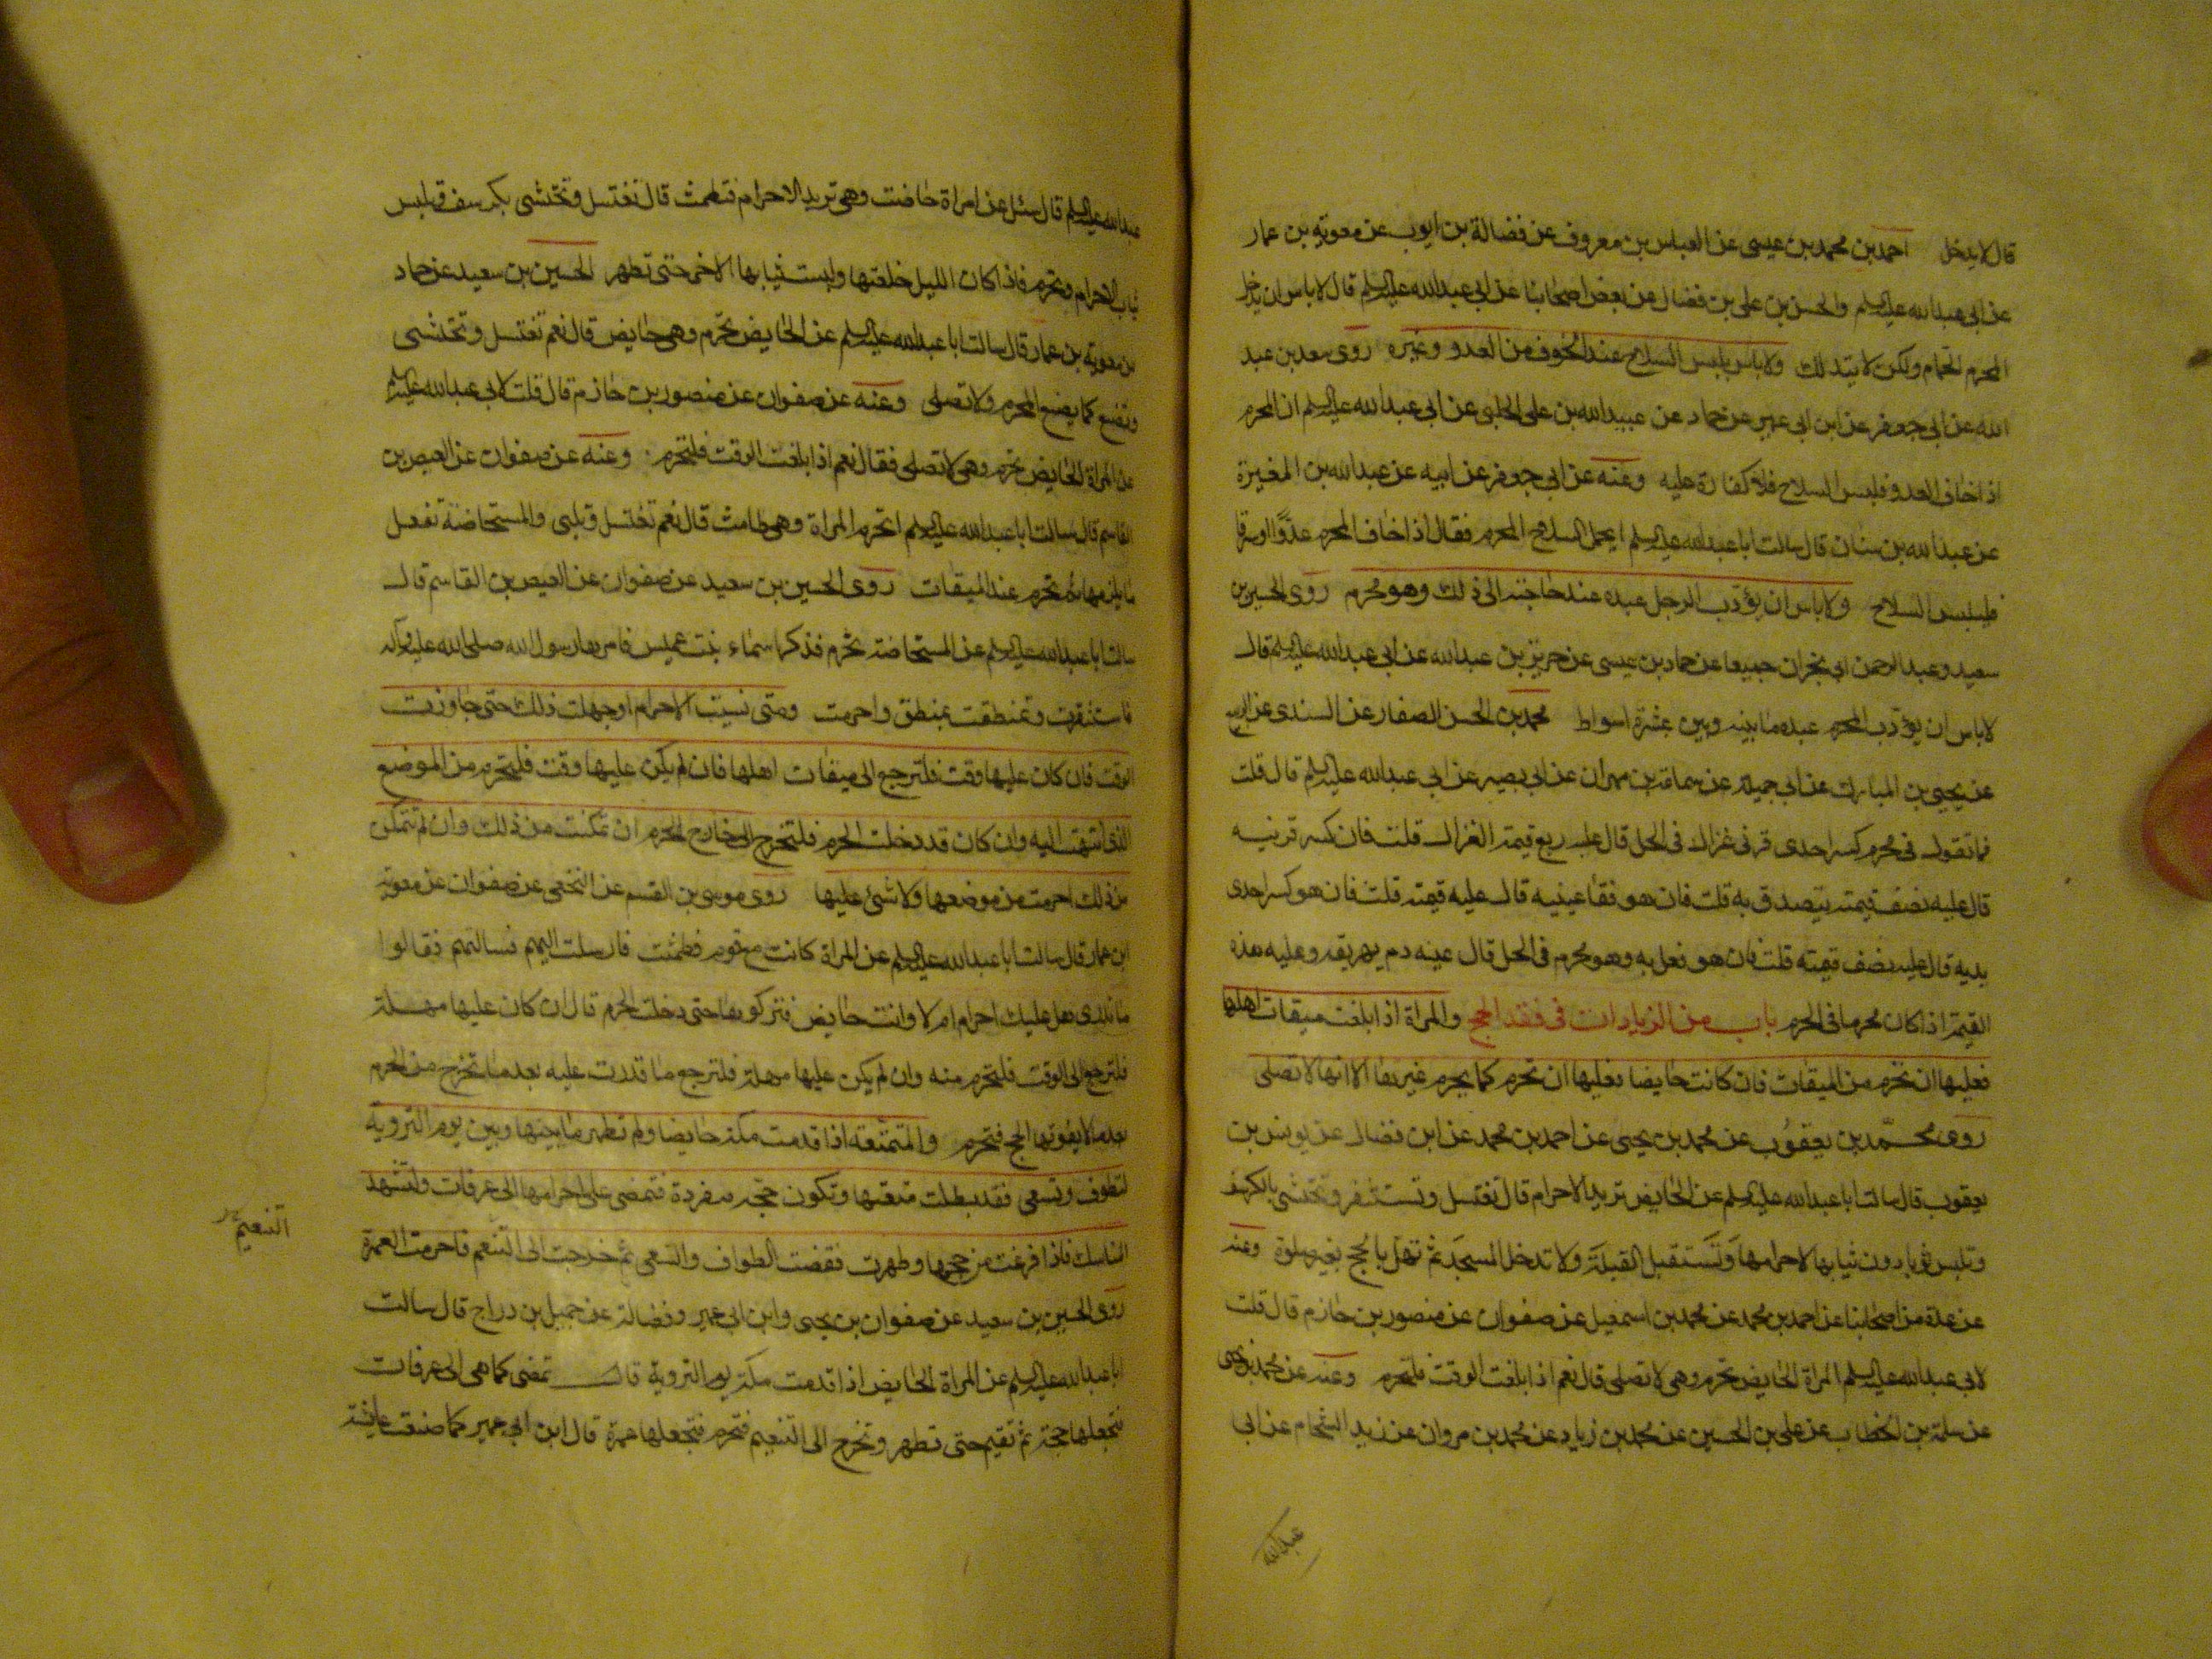 قال لا يدخل احمد بن محمد بن عيسى عن العباس بن معروف عن فضالة بن ايوب عن معوية بن عمار
عن ابى عبدالله عليه السلم والحسن بن على بن فضال عن بعض اصحابنا عن ابى عبدالله عليه السلم قال لا باس ان يدخل
المحرم الحمام ولكن لا يتدلك ولا باس بلبس السلاح عند الخوف من العدو وغيره روى سعد بن عبد
الله عن ابى جعفر عن ابن ابى عمير عن حماد عن عبيد الله بن على الحلبى عن ابى عبدالله عليه السلم ان المحرم
اذا خاف العدو فلبس السلاح فلا كفارة عليه وعنه عن ابى جعفر عن ابيه عن عبدالله بن المغيرة
عن عبدالله بن سنان قال سالت ابا عبدالله عليه السلم ايحمل السلاح المحرم فقال اذا خاف المحرم عدوًّا او سرقا
فليلبس السلاح ولا باس ان يؤدب الرجل عبده عند حاجته الى ذلك وهو محرم روى الحسين بن
سعيد وعبد الرحمن ابى نجران جميعا عن حماد بن عيسى عن حريز بن عبدالله عن ابى عبدالله عليه السلم قال
لا باس ان يؤدب المحرم عبده ما بينه وبين عشرة اسواط محمد بن الحسن الصفار عن السندى عن الربيع
عن يحيى بن المبارك عن ابى جميله عن سماعة بن مهران عن ابى بصير عن ابى عبدالله عليه السلم قال قلت
فما تقول فى محرم كسر احدى قرنى غزال فى الحل قال عليه ربع قيمة الغزال قلت فان كسر قرنيه
قال عليه نصف قيمته يتصدق به قلت فان هو فقا عينيه قال عليه قيمته قلت فان هو كسر احدى
يديه قال عليه نصف قيمته قلت فان هو فعل به وهو محرم فى الحل قال عيه دم يهريقه وعليه هذه
القيمة اذا كان محرما فى الحرم باب من الزيادات فى فقه الحج والمراة اذا بلغت ميقات اهلها
فعليها ان تحرم من الميقات فان كانت حايضا فعليها ان تحرم كما يحرم غيرها الا انها لا تصلى
روى محمّد بن يعقوب عن محمد بن يحيى عن احمد بن محمد عن ابن فضال عن يونس بن
يعقوب قال سالت ابا عبدالله عليه السلم عن الحايض تريد الاحرام قال تغتسل وتستثفر وتحتشى بالكرسف
وتلبس ثوبا دون ثيابها لاحرامها وتستقبل القبلة ولا تدخل المسجد ثم تهل بالحج بغير صلوة وعنه
عن عدة من اصحابنا عن احمد بن محمد عن محمد بن اسمعيل عن صفوان عن منصور بن حازم قال قلت
لابى عبدالله عليه السلم المراة الحايض تحرم وهى لا تصلى قال نعم اذا بلغت الوقت فلتحرم وعنه عن محمد بن يحيى
عن سلمة بن الخطاب عن على بن الحسين عن محمد بن زياد عن محمد بن مروان عن زيد الشحام عن ابى
عبدالله
عبدالله عليه السلم قال سئل عن امراة حاضت وهى تريد الاحرام فتطمث قال تغتسل وتحتشى بكرسف وتلبس
ثياب الاحرام وتحرم فاذا كان الليل خلعتها ولبست ثيابها الاخر حتى تطهر الحسين بن سعيد عن حماد
عن معوية بن عمار قال سالت ابا عبدالله عليه السلم عن الحايض تحرم وهى حايض قال نعم تغتسل وتحتشى
وتصنع كما يصنع المحرم ولا تصلى وعنه عن صفوان عن منصور بن حازم قال قلت لابى عبدالله عليه السلم
عن المراة الحايض تحرم وهى لا تصلى فقال نعم اذا بلغت الوقت فلتحرم وعنه عن صفوان عن العيص بن
القاسم قال سالت ابا عبدالله عليه السلم اتحرم المراة وهى طامث قال نعم تغتسل وتلبى والمستحاضة تفعل
ما يلزمها ثم تحرم عند الميقات روى الحسين بن سعيد عن صفوان عن العيص بن القاسم قال
سالت ابا عبدالله عليه السلم عن المستحاضة تحرم فذكر اسماء بنت عميس فامرها رسول الله صلى الله عليه وآله
فاستثفرت وتمنطقت بمنطق واحرمت ومتى نسيت الاحرام او جهلت ذلك حتى جاوزت
الوقت فان كان عليها وقت فلترجع الى ميقات اهلها فان لم يكن عليها وقت فلتحرم من الموضع
الذى انتهت اليه وان كان قد دخلت الحرم فلتخرج الى خارج الحرم ان تمكنت من ذلك وان لم تتمكن
من ذلك احرمت من موضعها ولا شئ عليها روى موسى بن القسم عن النخعى عن صفوان عن معوية
ابن عمار قال سالت ابا عبدالله عليه السلم عن المراة كانت مع قوم فطمثت فارسلت اليهم فسالتهم فقالوا
ما ندرى هل عليك احرام ام لا وانت حايض فتركوها حتى دخلت الحرم قال ان كان عليها مهلة
فلترجع الى الوقت فلتحرم منه وان لم يكن عليها مهلة فلترجع ما قدرت عليه بعد ما تخرج من الحرم
بقدر ما لا يفوتها الحج فتحرم والمتمتعة اذا قدمت مكة حايضا ولم تطهر ما بينها وبين يوم التروية
لتطوف وتسعى فقد بطلت متعتها وتكون حجة مفردة فتمضى على احرامها الى عرفات ولتشهد
المناسك فاذا فرغت من حجها وطهرت فقضت الطواف والسعى ثم خرجت الى التنعم فاحرمت العمرة
التنعيم
روى الحسين بن سعيد عن صفوان بن يحيى وابن ابى عمير وفضالة عن جميل بن دراج قال سالت
ابا عبدالله عليه السلم عن المراة الحايض اذا قدمت مكة يوم التروية قال تمضى كما هى الى عرفات
فتجعلها حجة ثم تقيم حتى تطهر وتخرج الى التنعيم فتحرم فتجعلها عمرة قال ابن ابى عمير كما صنعت عايشة